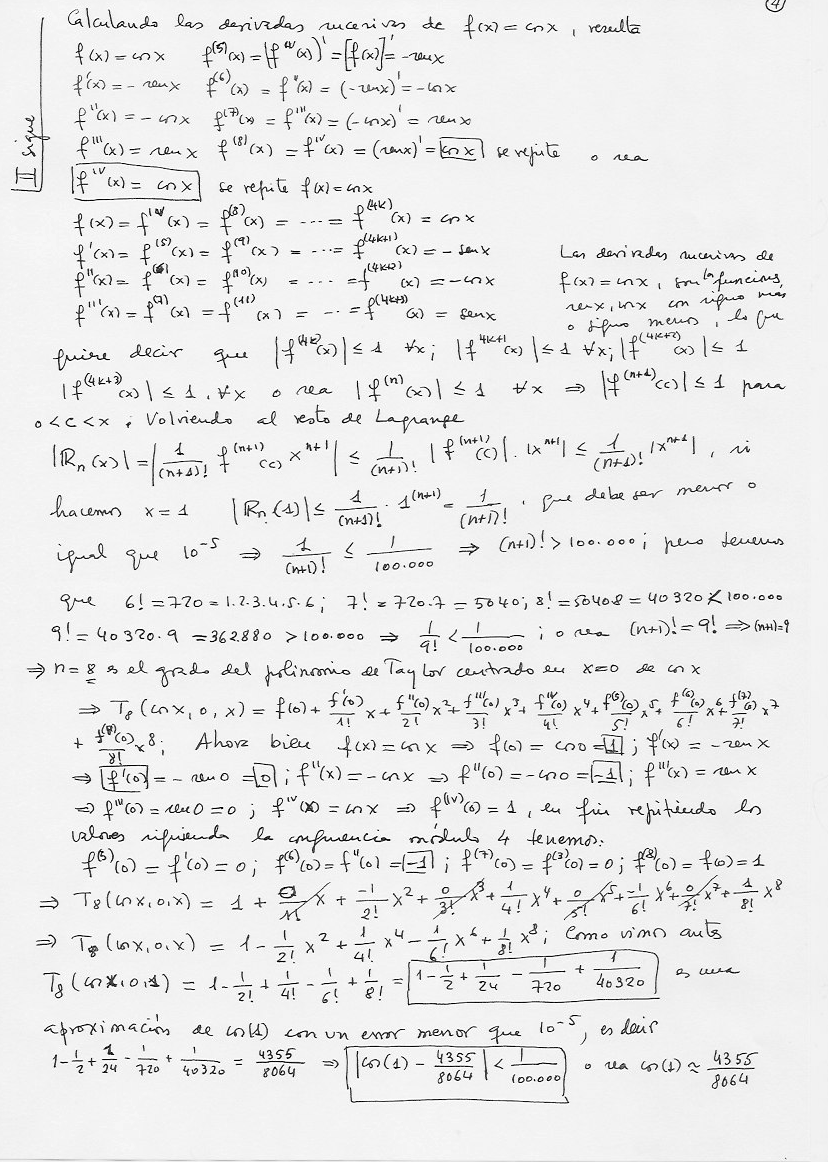 4
II sigue
Calculando las derivadas sucesivas de f(x) = cos x, resulta
f(x) = cos x f⁽⁵⁾(x) = (f^IV(x))' = [f(x)]' = -sen x
f'(x) = - sen x f⁽⁶⁾(x) = f''(x) = (-sen x)' = -cos x
f''(x) = - cos x f⁽⁷⁾(x) = f'''(x) = (-cos x)' = sen x
f'''(x) = sen x f⁽⁸⁾(x) = f^IV(x) = (sen x)' = cos x se repite o sea
f^IV(x) = cos x se repite f(x) = cos x
f(x) = f^IV(x) = f⁽⁸⁾(x) = ---- = f^(4K)(x) = cos x
f'(x) = f⁽⁵⁾(x) = f⁽⁹⁾(x) = --- = f^(4K+1)(x) = - sen x
f''(x) = f⁽⁶⁾(x) = f⁽¹⁰⁾(x) = --- = f^(4K+2)(x) = -cos x
f'''(x) = f⁽⁷⁾(x) = f⁽¹¹⁾(x) = --- = f^(4K+3)(x) = sen x
Las derivadas sucesivas de
f(x) = cos x, son las funciones,
sen x, cos x con signo más
o signo menos, lo que
quiere decir que |f^(4K)(x)| ≤ 1 ∀x; |f^4K+1(x)| ≤ 1 ∀x; |f^(4K+2)(x)| ≤ 1
|f^(4K+3)(x)| ≤ 1, ∀x o sea |f^(n)(x)| ≤ 1 ∀x ⇒ |f^(n+1)(c)| ≤ 1 para
0 < c < x. Volviendo al resto de Lagrange
|Rn(x)| = |1/(n+1)! f^(n+1)(c) x^n+1| ≤ 1/(n+1)! |f^(n+1)(c)|. |x^n+1| ≤ 1/(n+1)! |x^n+1|, si
hacemos x = 1 |Rn(1)| ≤ 1/(n+1)! · 1^(n+1) = 1/(n+1)!, que debe ser menor o
igual que 10^-5 ⇒ 1/(n+1)! ≤ 1/100.000 ⇒ (n+1)! > 100.000; pero tenemos
que 6! = 720 = 1.2.3.4.5.6; 7! = 720.7 = 5040; 8! = 5040.8 = 40320 ≮ 100.000
9! = 40320.9 = 362.880 > 100.000 ⇒ 1/9! < 1/100.000; o sea (n+1)! = 9! ⇒ (n+1) = 9
⇒ n = 8 es el grado del polinomio de Taylor centrado en x=0 de cos x
⇒ T8(cos x, 0, x) = f(0) + f'(0)/1! x + f''(0)/2! x² + f'''(0)/3! x³ + f^IV(0)/4! x⁴ + f⁽⁵⁾(0)/5! x⁵ + f⁽⁶⁾(0)/6! x⁶ + f⁽⁷⁾(0)/7! x⁷
+ f⁽⁸⁾(0)/8! x⁸; Ahora bien f(x) = cos x ⇒ f(0) = cos 0 = 1; f'(x) = - sen x
⇒ f'(0) = - sen 0 = 0; f''(x) = -cos x ⇒ f''(0) = -cos 0 = -1; f'''(x) = sen x
⇒ f'''(0) = sen 0 = 0; f^IV(x) = cos x ⇒ f^(IV)(0) = 1, en fin repitiendo los
valores siguiendo la congruencia módulo 4 tenemos.
f⁽⁵⁾(0) = f'(0) = 0; f⁽⁶⁾(0) = f''(0) = -1; f⁽⁷⁾(0) = f⁽³⁾(0) = 0; f⁽⁸⁾(0) = f(0) = 1
⇒ T8(cos x, 0, x) = 1 + 0/1! x + -1/2! x² + 0/3! x³ + 1/4! x⁴ + 0/5! x⁵ + -1/6! x⁶ + 0/7! x⁷ + 1/8! x⁸
⇒ T8(cos x, 0, x) = 1 - 1/2! x² + 1/4! x⁴ - 1/6! x⁶ + 1/8! x⁸; Como vimos antes
T8(cos x, 0, 1) = 1 - 1/2! + 1/4! - 1/6! + 1/8! = 1 - 1/2 + 1/24 - 1/720 + 1/40320 es una
aproximación de cos(1) con un error menor que 10^-5, es decir
1 - 1/2 + 1/24 - 1/720 + 1/40320 = 4355/8064 ⇒ |cos(1) - 4355/8064| < 1/100.000 o sea cos(1) ≈ 4355/8064